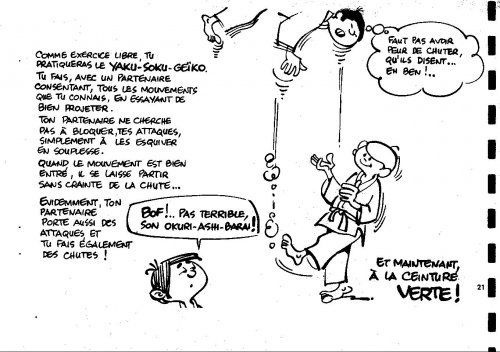 COMME EXERCICE LIBRE, TU
PRATIQUERAS LE YAKU-SOKU-GEÏKO.
TU FAIS, AVEC UN PARTENAIRE
CONSENTANT, TOUS LES MOUVEMENTS
QUE TU CONNAIS, EN ESSAYANT DE
BIEN PROJETER.
TON PARTENAIRE NE CHERCHE
PAS À BLOQUER, TES ATTAQUES,
SIMPLEMENT À LES ESQUIVER
EN SOUPLESSE.
QUAND LE MOUVEMENT EST BIEN
ENTRÉ, IL SE LAISSE PARTIR
SANS CRAINTE DE LA CHUTE...
EVIDEMMENT, TON
PARTENAIRE
PORTE AUSSI DES
ATTAQUES, ET
TU FAIS ÉGALEMENT
DES CHUTES !
BOF!.. PAS TERRIBLE,
SON OKURI-ASHI-BARAI!
FAUT PAS AVOIR
PEUR DE CHUTER,
QU'ILS DISENT...
EH BEN !..
ET MAINTENANT,
À LA CEINTURE
VERTE !
21